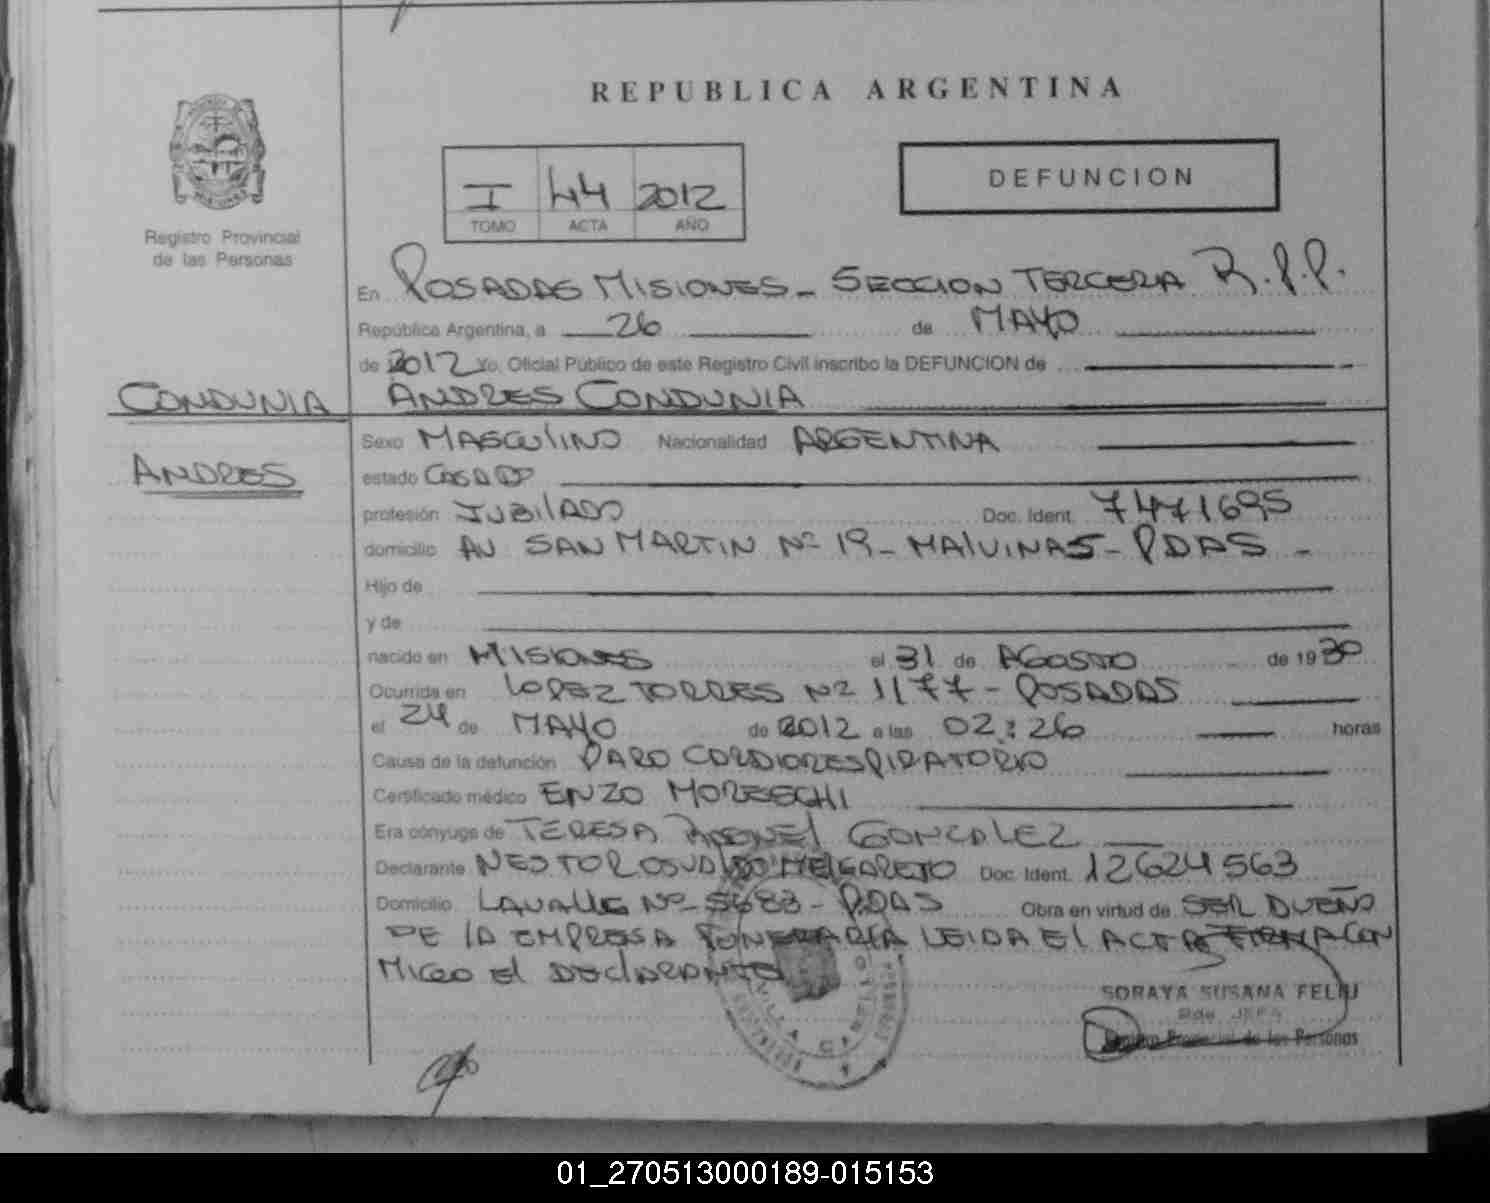 REPUBLICA ARGENTINA
Registro Provincial
de las Personas
I 44 2012
TOMO ACTA AÑO
DEFUNCION
En POSADAS MISIONES - SECCION TERCERA R.P.P.
República Argentina, a 26 de MAYO
de 2012 Yo, Oficial Público de este Registro Civil inscribo la DEFUNCION de
CONDUNIA
ANDRES CONDUNIA
ANDRES
Sexo MASCULINO Nacionalidad ARGENTINA
estado CASADO
profesión JUBILADO Doc. Ident. 7471695
domicilio AV SAN MARTIN Nº 19 - MALVINAS - PDAS -
Hijo de
y de
nacido en MISIONES el 31 de AGOSTO de 1930
Ocurrida en LOPEZ TORRES Nº 1177 - POSADAS
el 24 de MAYO de 2012 a las 02:26 horas
Causa de la defunción PARO CARDIORESPIRATORIO
Certificado médico ENZO MORESCHI
Era cónyuge de TERESA RAQUEL GONZALEZ
Declarante NESTOR OSVALDO MELGAREJO Doc. Ident. 12624563
Domicilio LAVALLE Nº 5683 - PDAS Obra en virtud de SER DUEÑO
DE LA EMPRESA FUNERARIA LEIDA EL ACTA FIRMA CON
MIGO EL DECLARANTE
SORAYA SUSANA FELIU
JEFA
Registro Provincial de las Personas
01_270513000189-015153